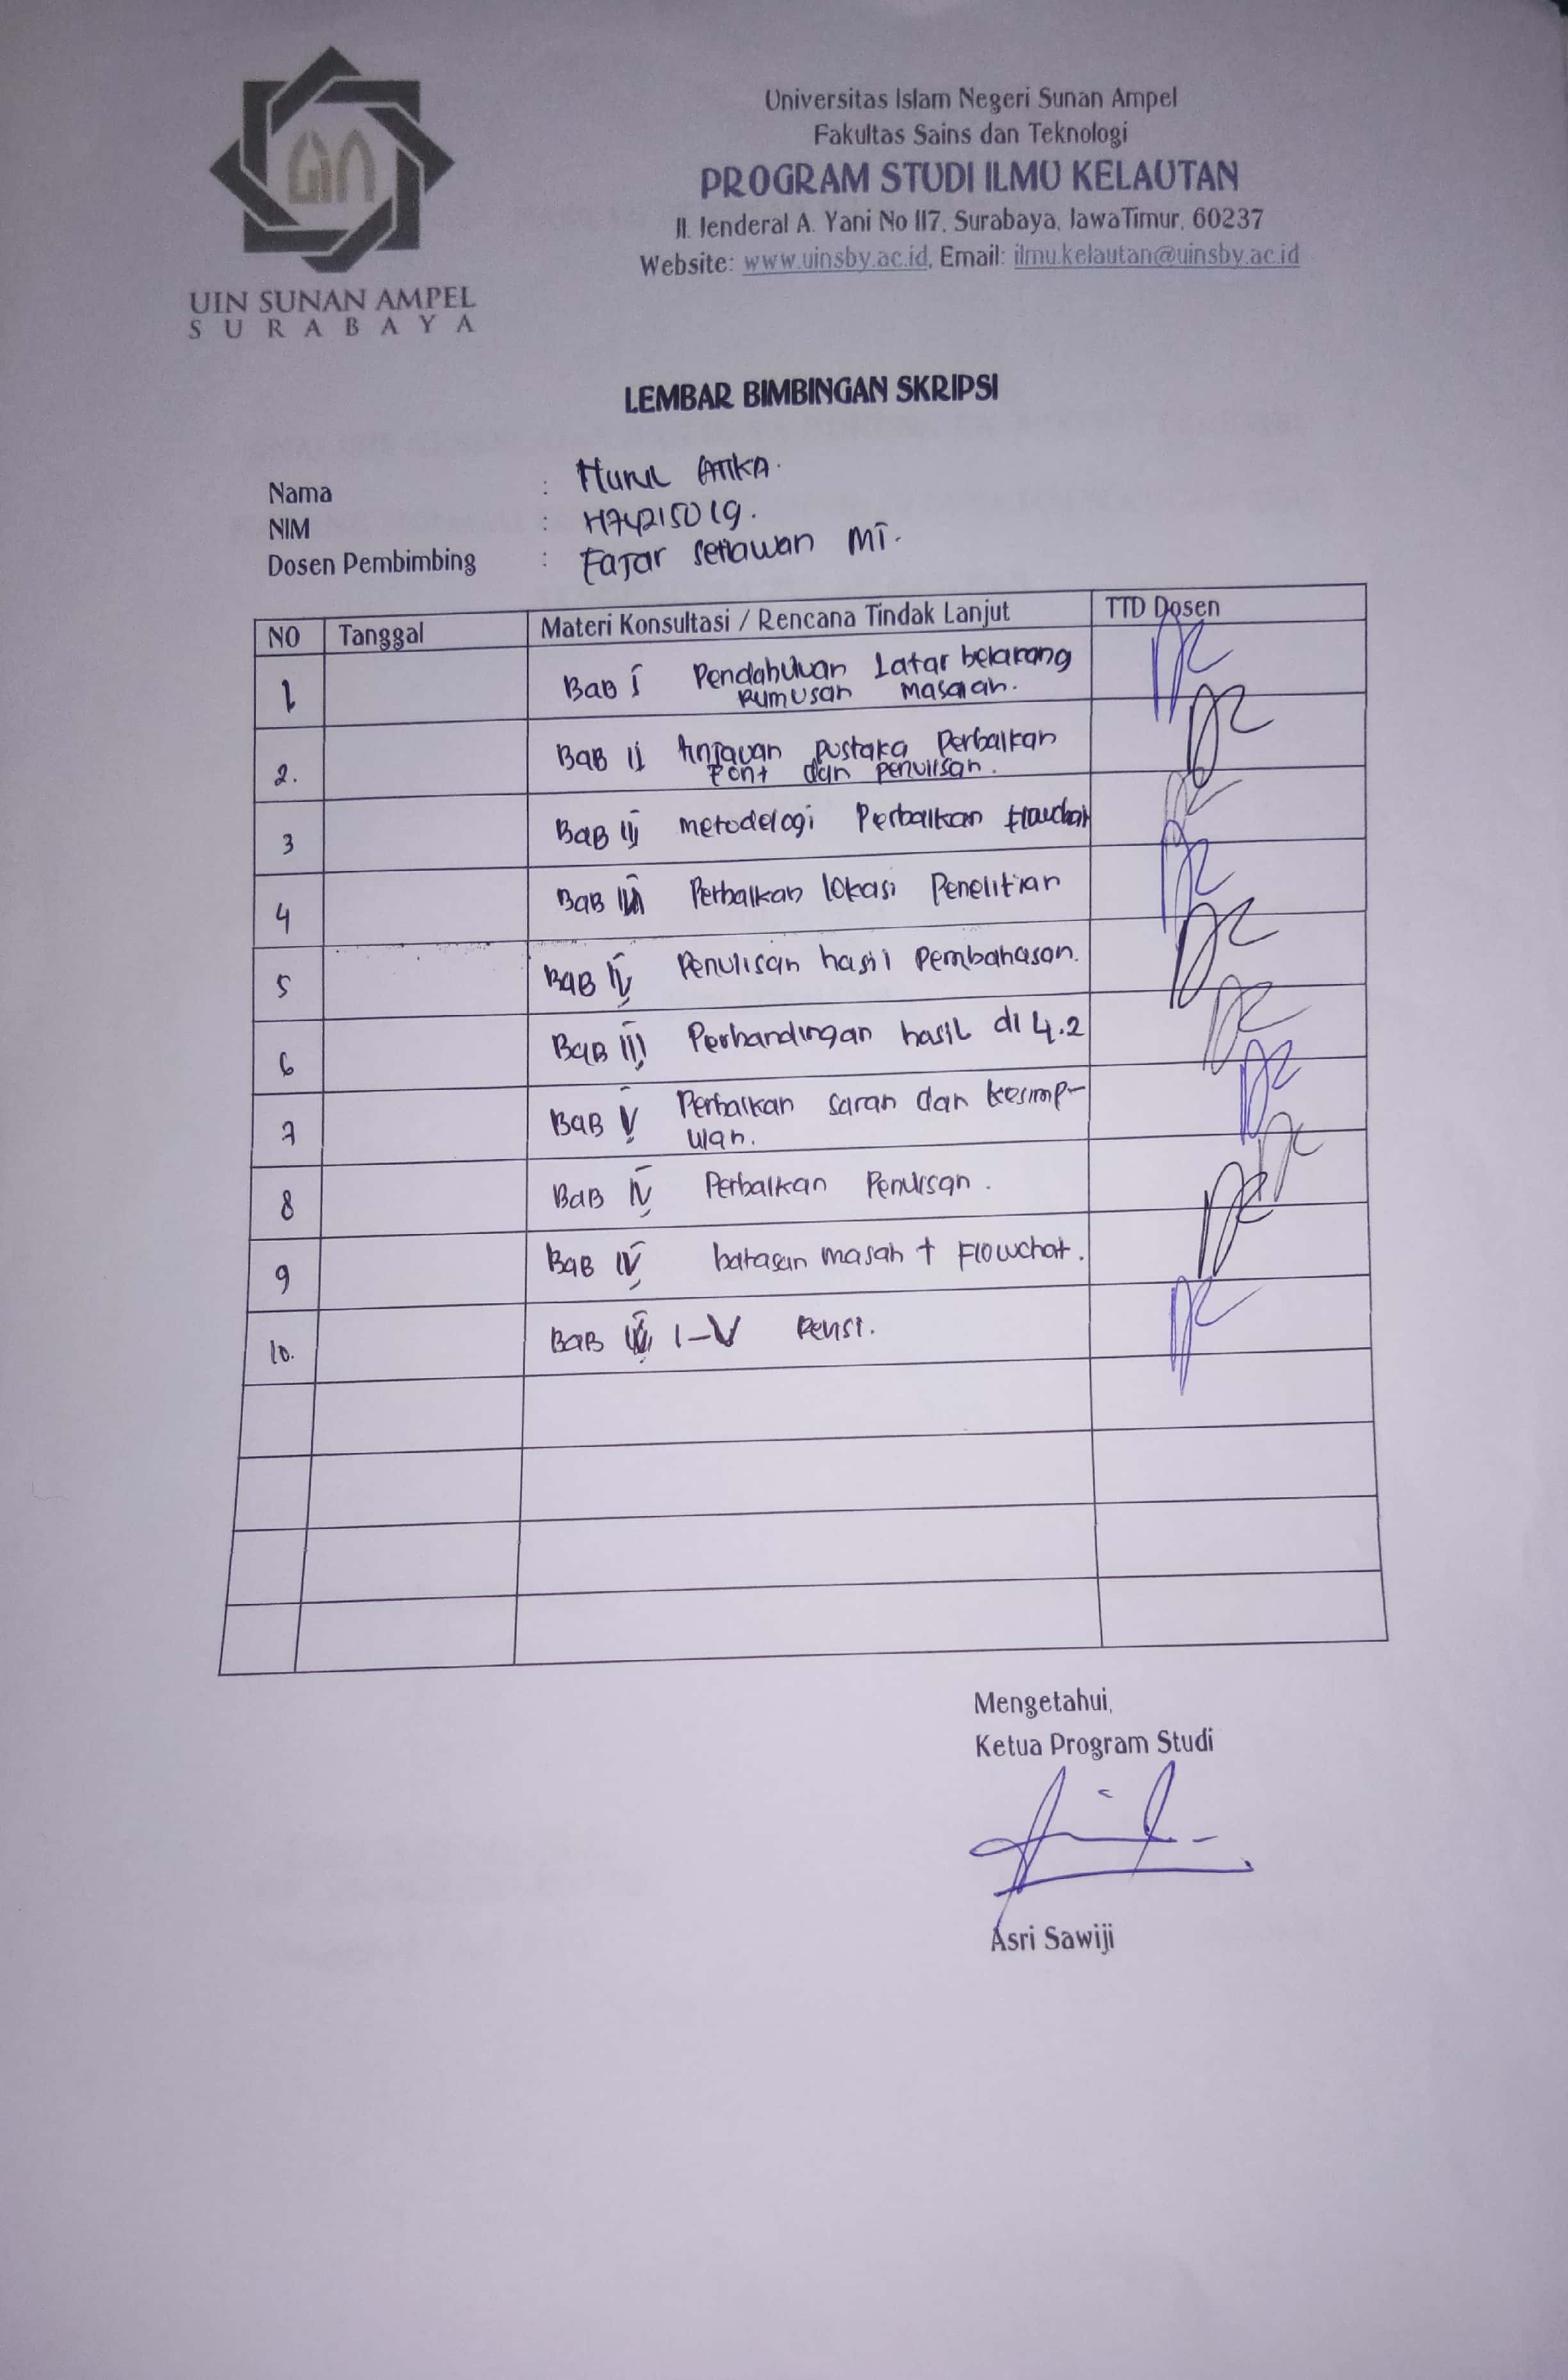 UIN SUNAN AMPEL
SURABAYA
Universitas Islam Negeri Sunan Ampel
Fakultas Sains dan Teknologi
PROGRAM STUDI ILMU KELAUTAN
Jl. Jenderal A. Yani No 117, Surabaya, JawaTimur, 60237
Website: www.uinsby.ac.id, Email: ilmu.kelautan@uinsby.ac.id
LEMBAR BIMBINGAN SKRIPSI
Nama : Nurul Atika.
NIM : H74215019.
Dosen Pembimbing : Fajar Setiawan MT.
NO Tanggal Materi Konsultasi / Rencana Tindak Lanjut TTD Dosen
1 Bab I Pendahuluan Latar belakang
Rumusan
2. Bab II Pustaka Perbaikan
Font dan penulisan.
3 Bab III metodelogi Perbaikan
4 Bab III Perbaikan lokasi Penelitian
5 Bab IV Penulisan hasil pembahasan.
6 Bab III Perbandingan hasil di 4.2
7 Bab V Perbaikan saran dan kesimp-
ulan.
8 Bab IV Perbaikan
9 Bab IV batasan masah + Flowchat.
10. Bab I-V Revisi.
Mengetahui,
Ketua Program Studi
Asri Sawiji